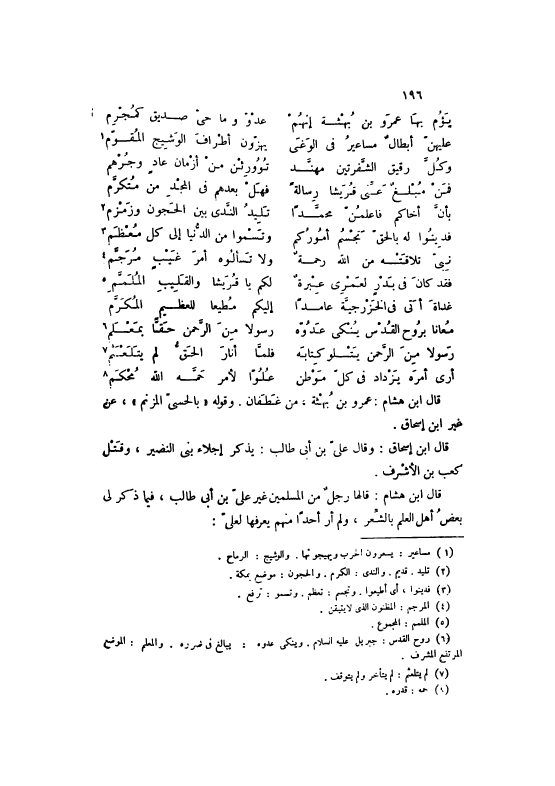 ١٩٦
يَؤُم بها عمرو بن بُهْثة إنهُمْ عدوّ وما حىّ صديق كمُجْرِم
عليهنّ أبطالٌ مساعيرُ فى الوَغَى يهزّون أطرافَ الوَشيج المُقَوّم١
وكلَّ رقيق الشَّفرتين مهنَّد تُوورِثْن منْ أزمان عادٍ وجُرْهم
فمَنْ مُبْلغٌ عَنّى قُريشا رسالةً فهلْ بعدهم فى المجْد من مُتكرَّم
بأنَّ أخاكم فاعلمُنّ محمَّدًا تَليدُ النَّدى بين الحَجون وزمْزم٢
فدِينُوا له بالحقّ تَجْسُم أمُورُكم وتَسْموا من الدُّنيا إلى كل مُعْظَم٣
نبىّ تلاقتْه من الله رحمةٌ ولا تسألُوه أمرَ غَيْبٍ مُرَجَّم٤
فقد كانَ فى بَدْرٍ لعَمْرى عِبْرةٌ لكم يا قُريشا والقَليبِ المُلمَّم٥
غداةَ أتى فى الخَزْرجيَّة عامدًا إليكم مُطيعا للعظيم المُكرَّم
مُعانا برُوح القُدْس يُنْكى عَدُوّه رسولا مِنَ الرَّحمن حَقًّا بمَعْلم٦
رَسولا مِنَ الرَّحمن يَتْلو كِتابَه فلمَّا أنارَ الحَقُّ لم يتلَعْثَم٧
أرى أمرَه يَزْداد فى كلّ مَوْطن عُلُوًا لأمر حَمَّه اللهُ مُحْكَم٨
قال ابن هشام : عمرو بن بُهثة ، من غَطَفان . وقوله « بالحسىّ المزنم » ، عن
غير ابن إسحاق .
قال ابن إسحاق : وقال علىّ بن أبى طالب : يذكر إجلاء بنى النضير ، وقَتْل
كعب بن الأشرف .
قال ابن هشام : قالها رجلٌ من المسلمين غير علىّ بن أبى طالب ، فيما ذكر لى
بعضُ أهل العلم بالشِّعر ، ولم أر أحدًا منهم يعرفها لعلىّ :
(١) مساعير : يسعرون الحرب ويهيجونها . والوشيج : الرماح .
(٢) تليد . قديم . والندى : الكرم . والحجون : موضع بمكة .
(٣) فدينوا ، أى أطيعوا . وتجسم : تعظم . وتسمو : ترفع .
(٤) المرجم : المظنون الذى لايتيقن .
(٥) الملمم : المجموع .
(٦) روح القدس : جبريل عليه السلام . وينكى عدوه : يبالغ فى ضرره . والمعلم : الموضع
المرتفع المشرف .
(٧) لم يتلعثم : لم يتأخر ولم يتوقف .
(٨) حمه : قدره .